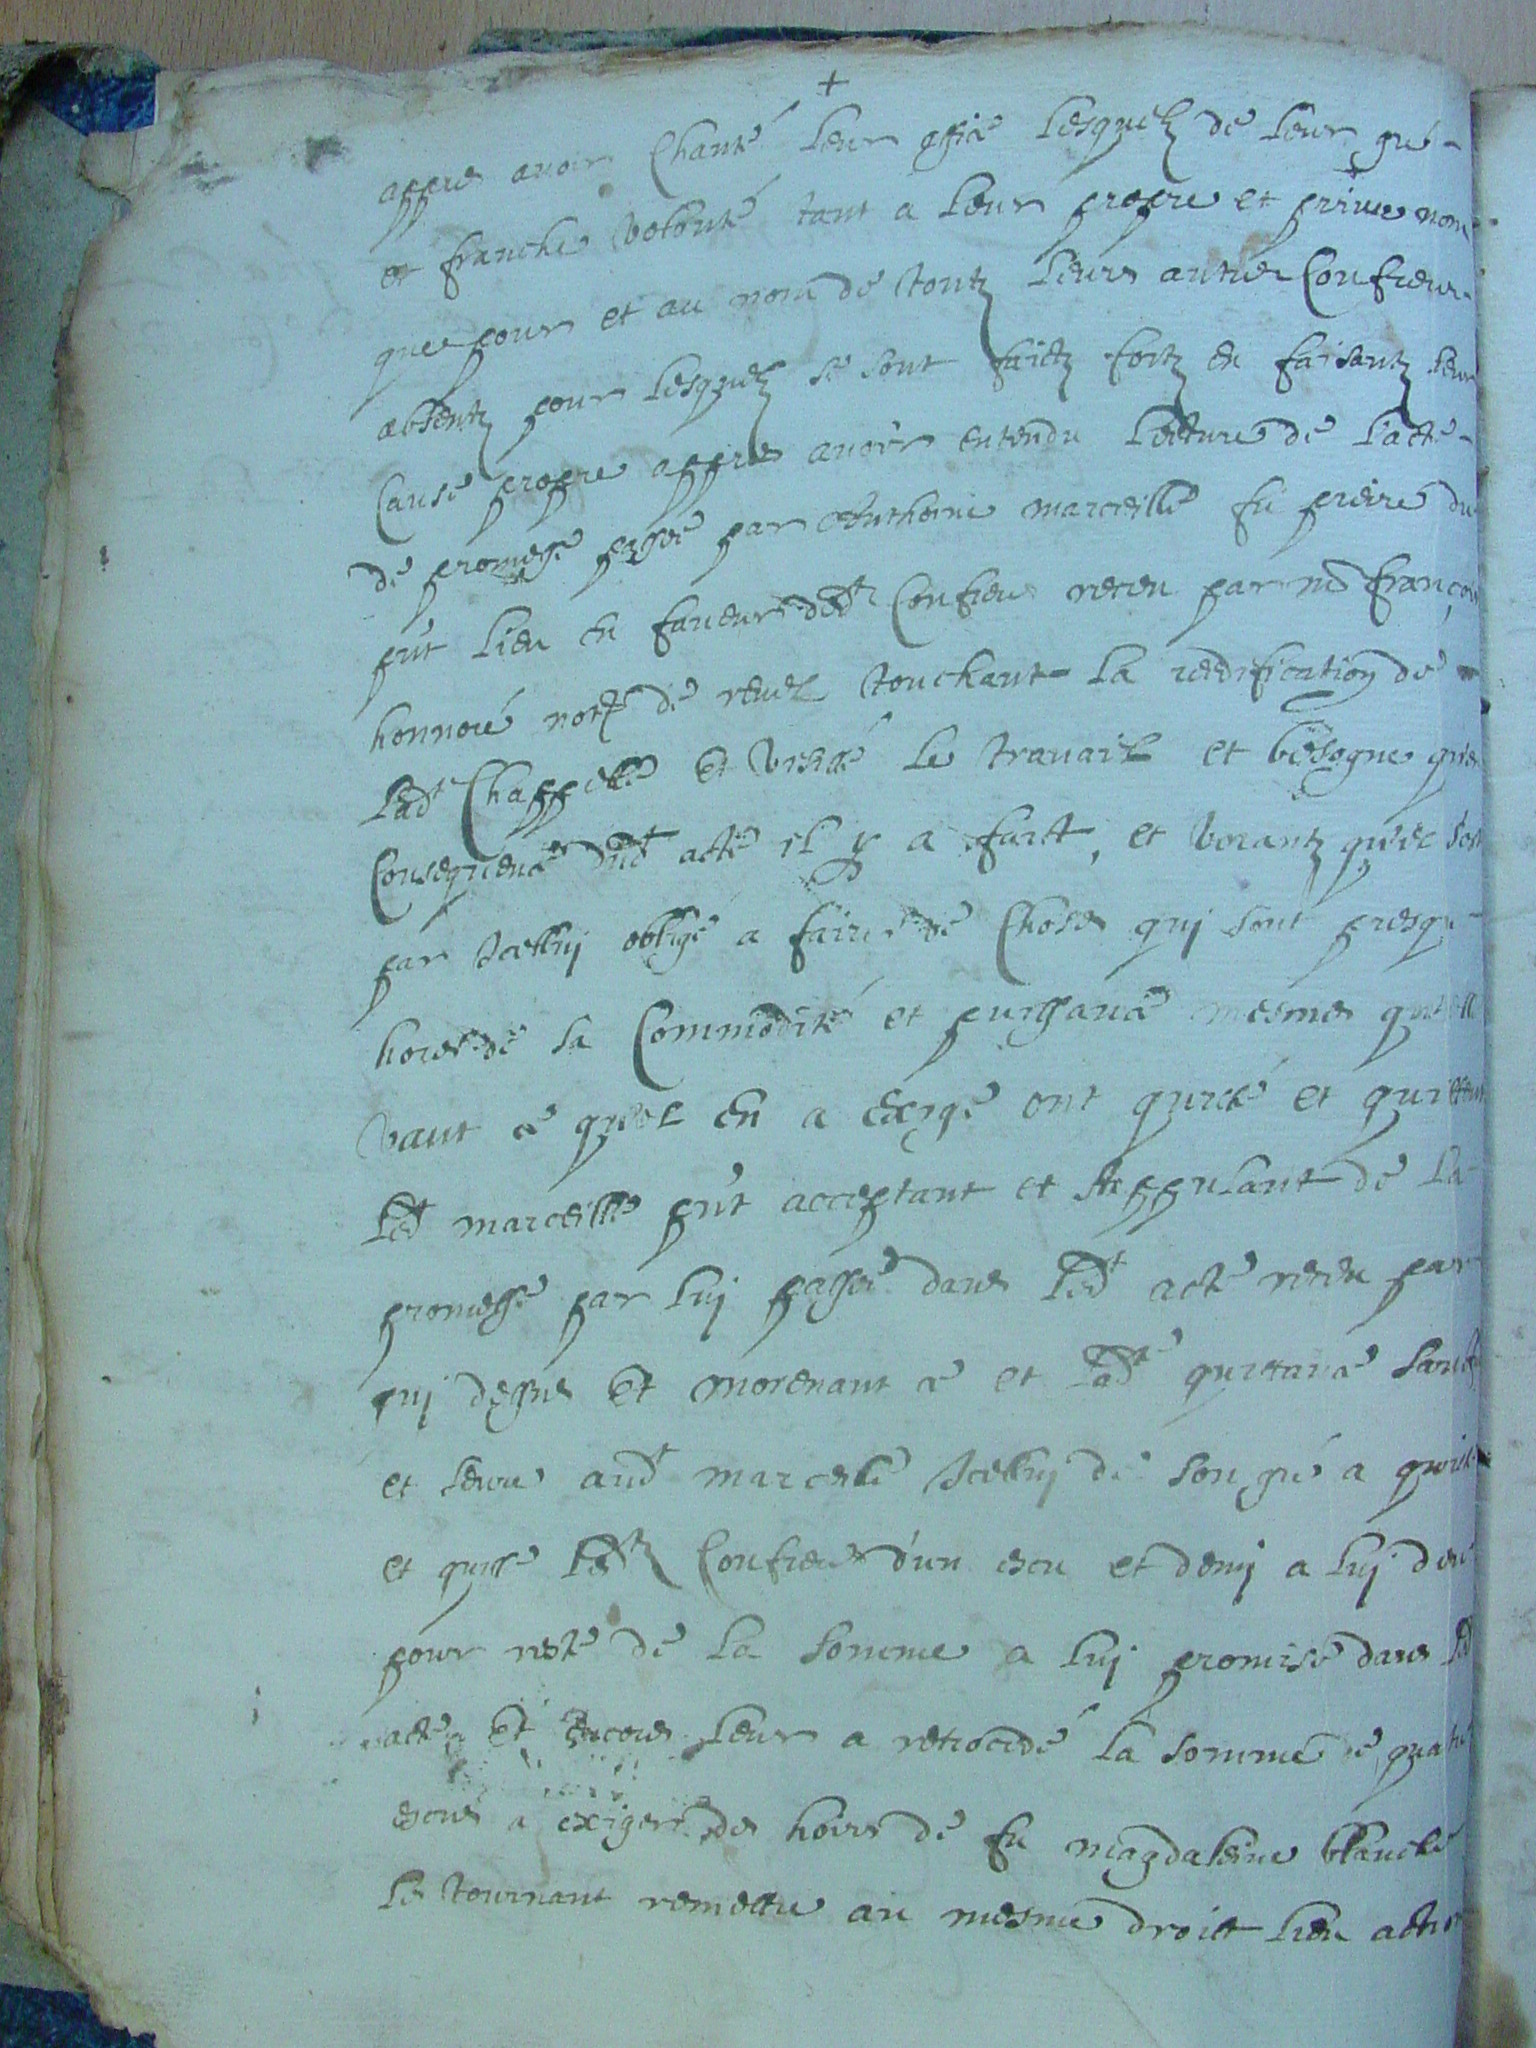 +
appres avoir Chanté leur office lesquelz de leur gré
et franche volonté tant a leur propre et prive nom
que pour et au nom de toutz leurs autres Confreres
absentz pour lesquelz se sont faictz fortz en faisantz leur
Cause propre appres avoir entendu lecture de l'acte
de promesse passé par Anthoine marceille fu pierre du
pnt lieu en faveur desdtz Confreres receu par me françois
honnoré notre de revel touchant la reedification de
ladt Chappelle et visité le travail et besogne qu'en
Consequence dudt acte il y a faict, et voiantz qu'il sest
par Icelluy obligé a faire de Choses qui sont presque
hors de sa Commodité et puissance mesmes qu'il
vaut ce qu'il en a exigé ont quicté et quittent
ledt marceille pnt acceptant et stippulant de la
promesse par luj passée dans ledt acte receu par
quj dessus Et moienant ce et ladte quittance
et audt marceille Icelluy de son gré a quicté
et quitte lesdtz Confreres d'un escu et demj a luj deu
pour reste de la somme a luj promise dans led
acte, Et encores leur a retrocedé la somme de quatre
escus a exiger des hoirs de fu magdaleine blanche
les tournant remettre au mesme droict lieu action